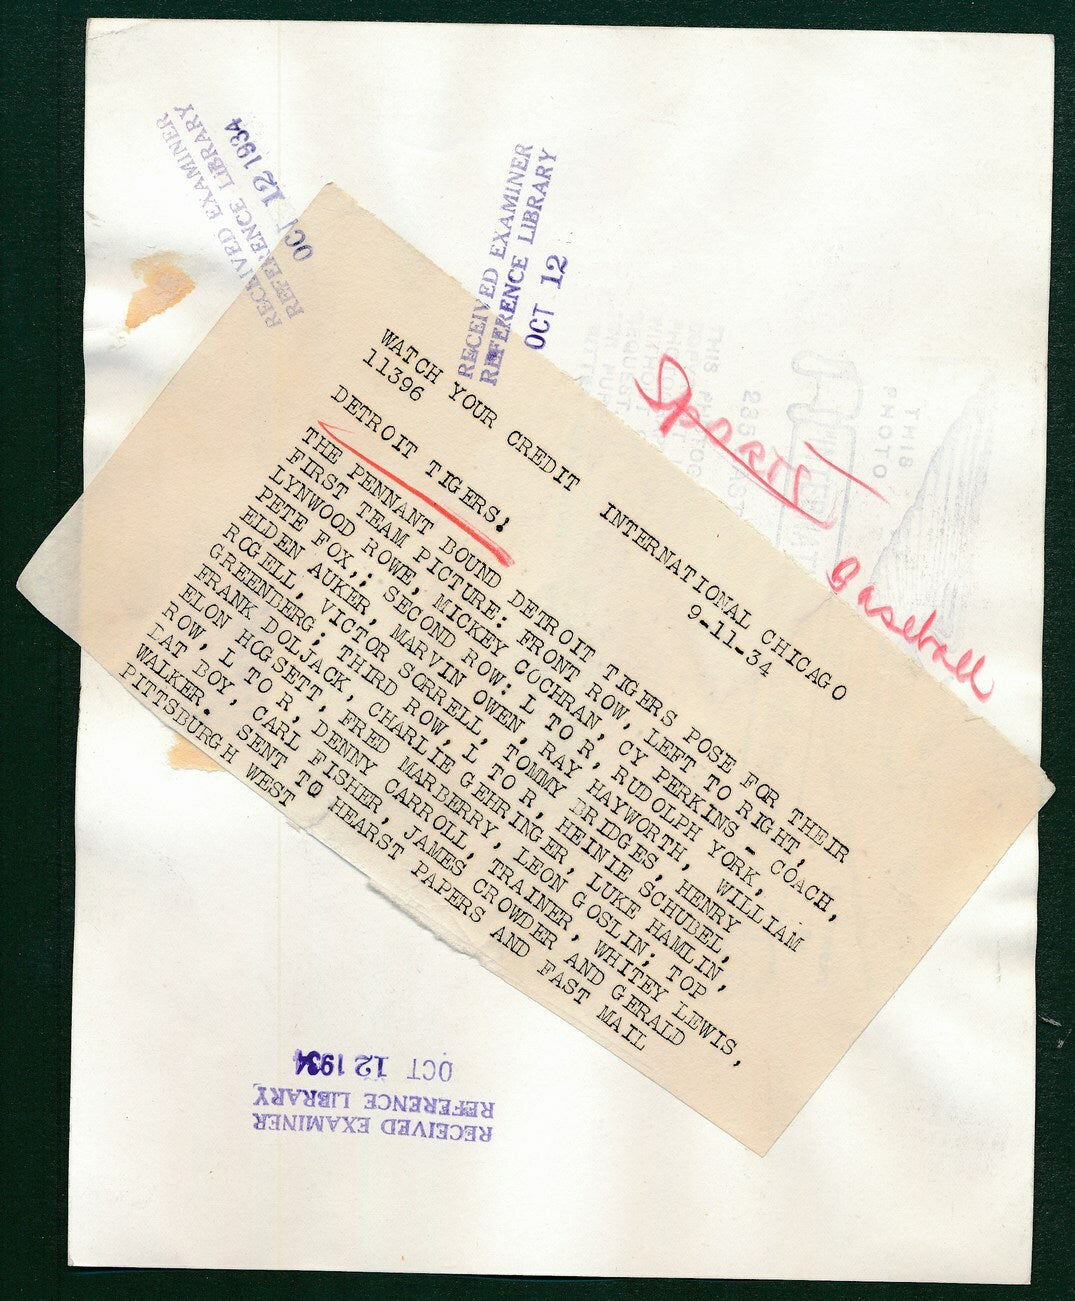 RECEIVED EXAMINER
REFERENCE LIBRARY
OCT 12 1934
RECEIVED EXAMINER
REFERENCE LIBRARY
OCT 12
Sports
Baseball
WATCH YOUR CREDIT INTERNATIONAL CHICAGO
11396 9-11-34
DETROIT TIGERS!
THE PENNANT BOUND DETROIT TIGERS POSE FOR THEIR
FIRST TEAM PICTURE: FRONT ROW, LEFT TO RIGHT,
LYNWOOD ROWE, MICKEY COCHRAN, CY PERKINS - COACH,
PETE FOX,; SECOND ROW: L TO R, RUDOLPH YORK,
ELDEN AUKER, MARVIN OWEN, RAY HAYWORTH, WILLIAM
ROGELL, VICTOR SORRELL, TOMMY BRIDGES, HENRY
GREENBERG; THIRD ROW, L TO R, HEINIE SCHUBEL,
FRANK DOLJACK, CHARLIE GEHRINGER, LUKE HAMLIN,
ELON HOGSETT, FRED MARBERRY, LEON GOSLIN; TOP
ROW, L TO R, DENNY CARROLL, TRAINER, WHITEY LEWIS,
BAT BOY, CARL FISHER, JAMES CROWDER AND GERALD
WALKER. SENT TO HEARST PAPERS AND FAST MAIL
PITTSBURGH WEST
RECEIVED EXAMINER
REFERENCE LIBRARY
OCT 12 1934
THIS
PHOTO